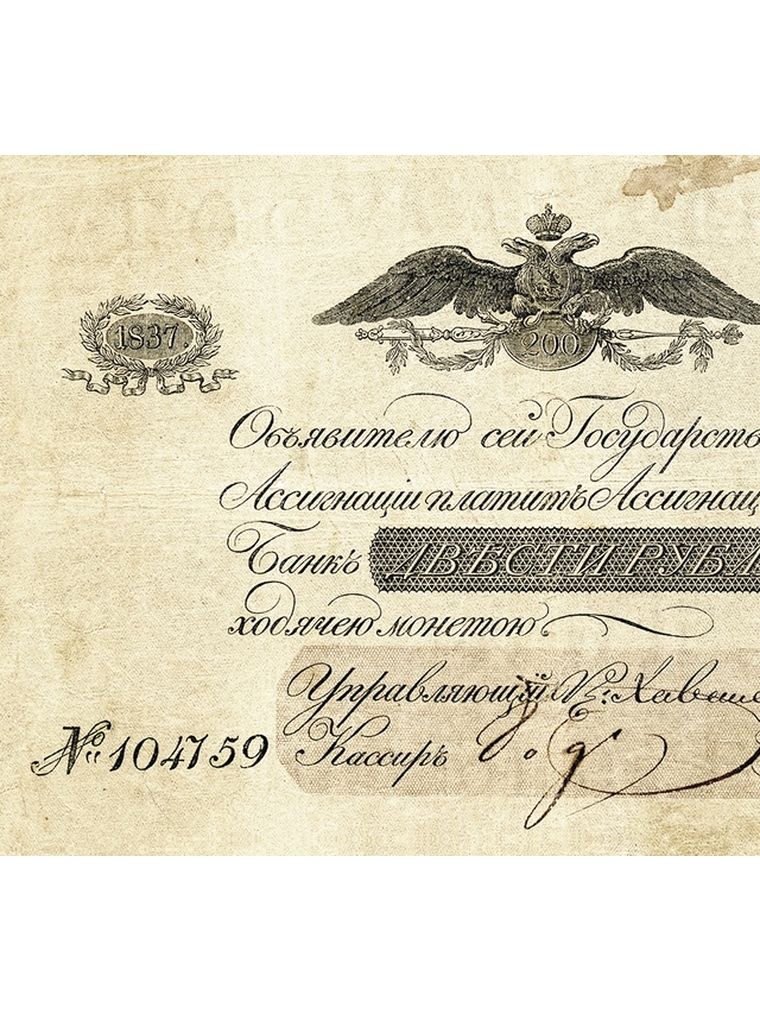 1837.
200
Объявителю сей Государств
Ассигнаціи платитъ Ассигнац
Банкъ ДВѢСТИ РУБЛ
ходячею монетою
Управляющій
Кассиръ
№ 104759